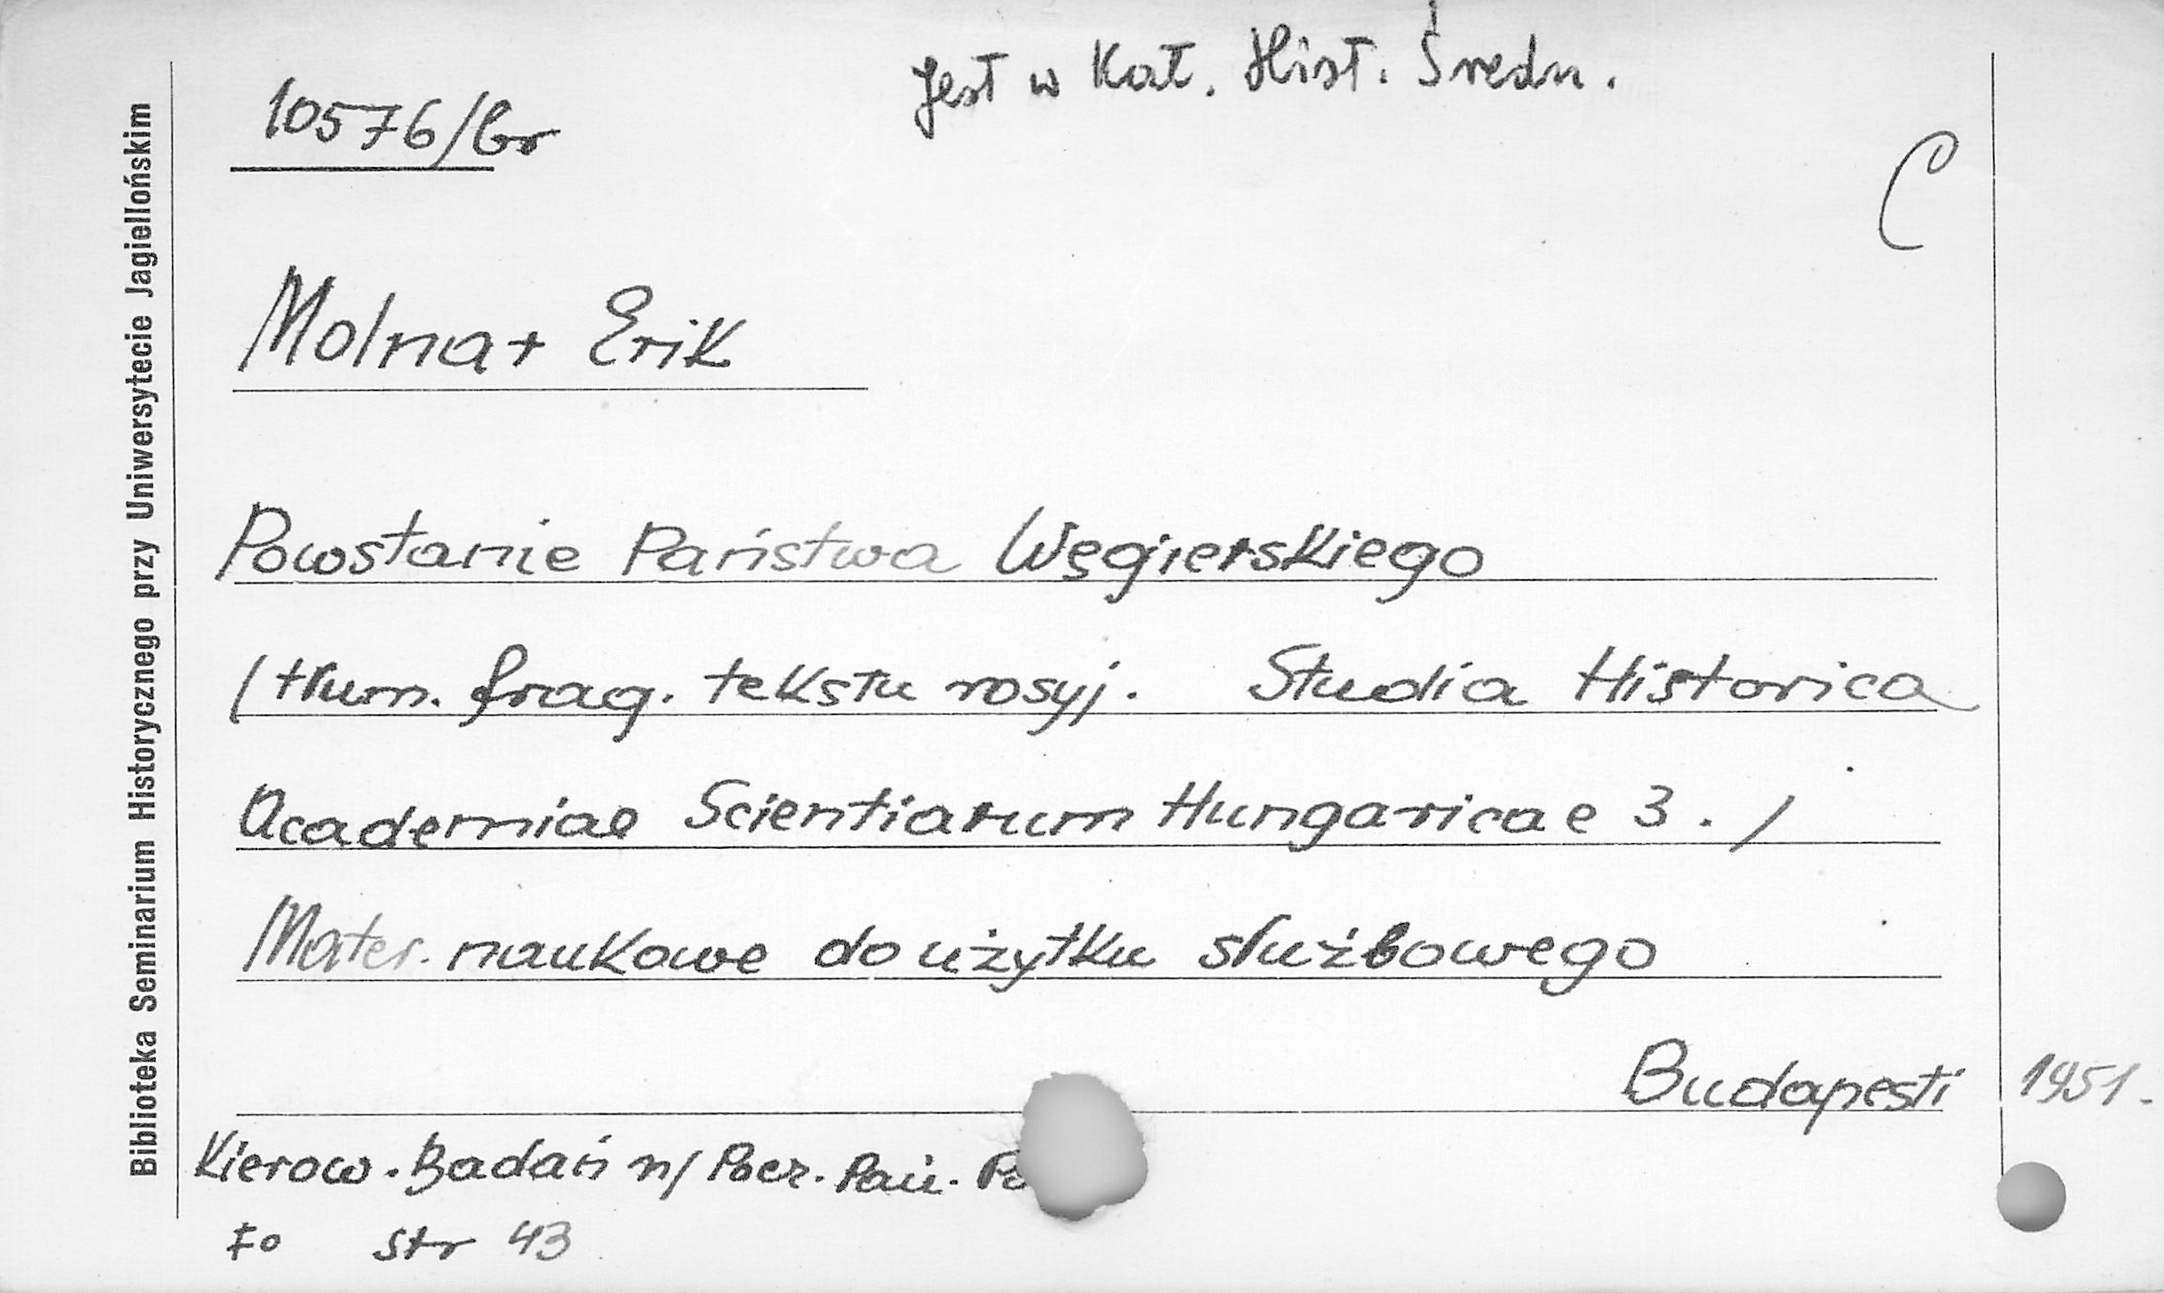 Jest w Kat. Hist. Średn.
10576/br
C
Molnar Erik
Powstanie Państwa Węgierskiego
/tłum. frag. tekstu rosyj. Studia Historica
Academiae Scientiarum Hungaricae 3./
Mater. naukowe do użytku służbowego
Budapeszti 1951.
Kierow. Badań n/ Pocz. Pań. Po
Fo str 43
Biblioteka Seminarium Historycznego przy Uniwersytecie Jagiellońskim